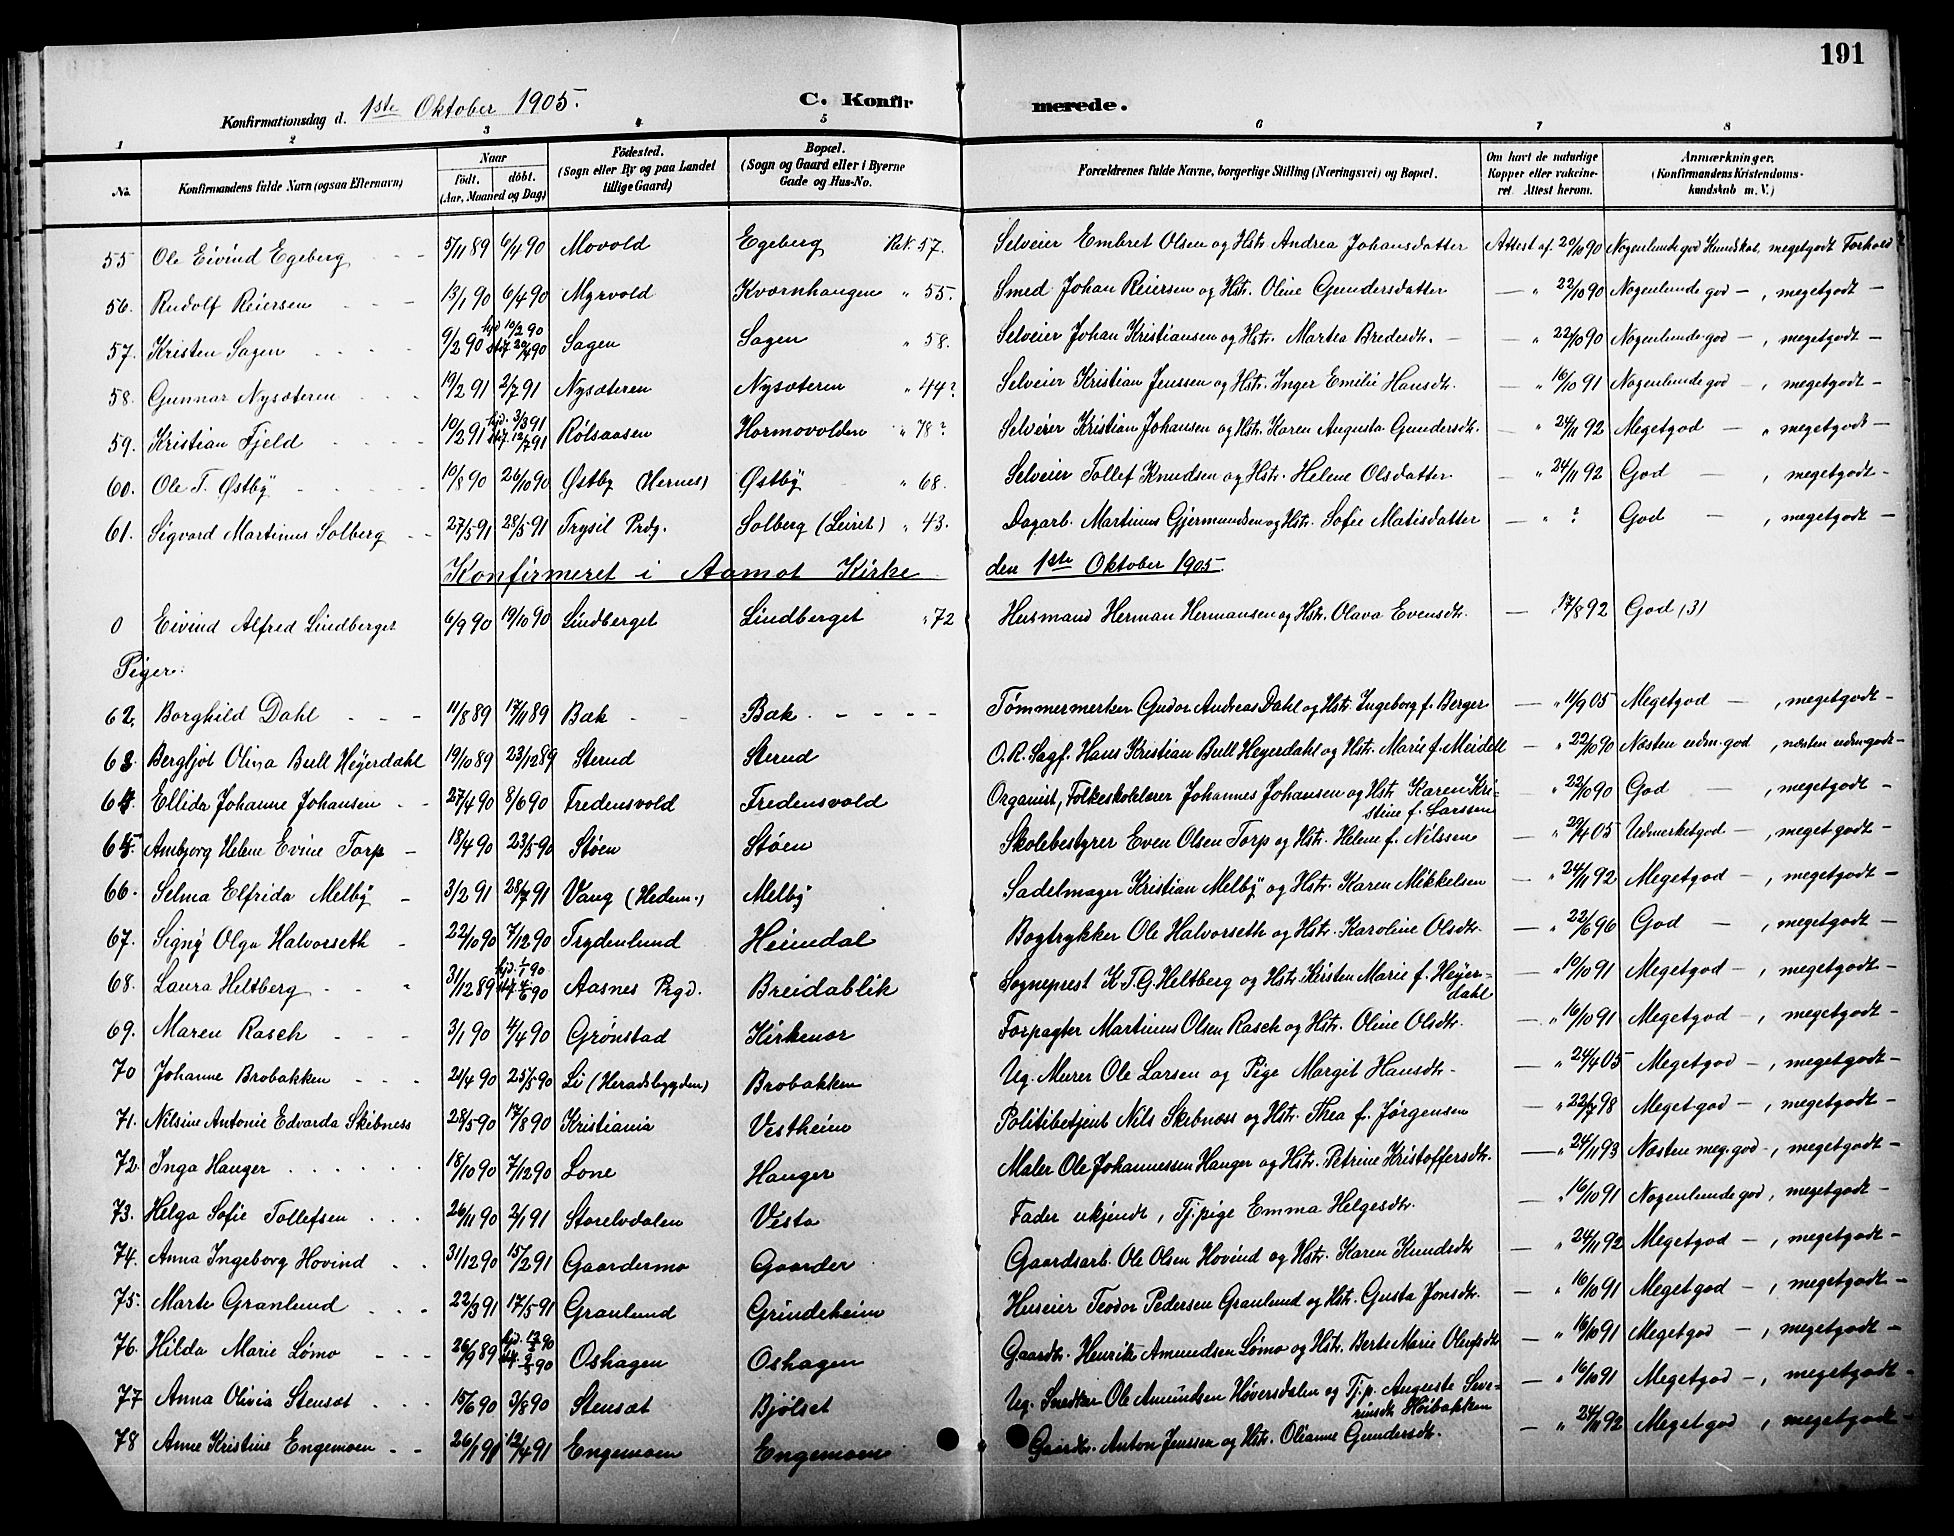 191
Konfirmationsdag d. 1ste Oktober 1905. C. Konfirmerede.
1 2 3 4 5 6 7 8
No. Konfirmandens fulde Navn (ogsaa Efternavn) Naar født. døbt. (Aar, Maaned og Dag) Fødested. (Sogn eller By og paa Landet tillige Gaard) Bopæl. (Sogn og Gaard eller i Byerne Gade og Hus-No. Forældrenes fulde Navne, borgerlige Stilling (Næringsvei) og Bopæl. Om havt de naturlige Kopper eller vakcineret. Attest herom. Anmærkninger. (Konfirmandens Kristendomskundskab m. V.)
55 Ole Eivind Egeberg 5/11 89 6/4 90 Movold Egeberg Rk. 57. Selveier Embret Olsen og Hstr. Andrea Johansdatter Attest af 20/10 90 Nogenlunde god Kundskab, megetgodt Forhold
56. Rudolf Reiersen 13/1 90 6/4 90 Myrvold Kvernhaugen " 55. Smed Johan Reiersen og Hstr. Oline Gundersdatter — " 22/10 90 Nogenlunde god —, megetgodt —
57. Kristen Sagen 9/2 90 hjd. 10/2 90 20/4 90 Sagen Sagen " 58. Selveier Johan Kristiansen og Hstr. Martea Bredesdtr. — " 22/10 90 Nogenlunde god —, megetgodt —
58. Gunnar Nysæteren 19/2 91 2/7 91 Nysæteren Nysæteren " 44? Selveier Kristian Jenssen og Hstr. Inger Emilie Hansdtr. " 16/10 91 Nogenlunde god —, megetgodt —
59. Kristian Fjeld 10/2 91 hjd. 3/3 91 12/7 91 Rølsaasen Hormovolden " 78? Selveier Kristian Johansen og Hstr. Karen Augusta Gundersdtr. " 24/11 92 Megetgod —, megetgodt —
60. Ole T. Østby 10/8 90 26/10 90 Østby (Hernes) Østby " 68. Selveier Tollef Knudsen og Hstr. Helene Olsdatter — " 24/11 92 God —, megetgodt —
61. Sigvard Martinus Solberg 27/5 91 28/5 91 Trysil Prdg. Solberg (Leiret) " 43. Dagarb. Martinus Gjermundsen og Hstr. Sofie Matisdatter — " ? God —, megetgodt —
Konfirmeret i Aamot Kirke den 1ste Oktober 1905.
0 Eivind Alfred Lindberget 6/9 90 19/10 90 Lindberget Lindberget " 72 Husmand Herman Hermansen og Hstr. Olava Evensdtr. — " 17/8 92 God (3)
Piger:
62. Borghild Dahl 11/8 89 17/11 89 Bæk Bæk Tømmermerker Gudor Andreas Dahl og Hstr. Ingeborg f. Berger — " 11/9 05 Megetgod —, megetgodt —
63. Bergljot Olina Bull Heyerdahl 19/10 89 23/12 89 Sterud Sterud O.R. Sagf. Hans Kristian Bull Heyerdahl og Hstr. Marie f. Meidell — " 22/10 90 Næsten udm. god, næsten udm. godt —
64. Ellida Johanne Johansen 27/4 90 8/6 90 Fredensvold Fredensvold Organist, Folkeskolelærer Johannes Johansen og Hstr. Karen Kristine f. Larssen " 22/10 90 God —, megetgodt —
65. Ambjørg Helene Evine Torp 18/4 90 23/5 90 Støen Støen Skolebestyrer Even Olsen Torp og Hstr. Helene f. Nilssen " 29/4 05 Udmerketgod —, megetgodt —
66. Selma Elfrida Melby 3/2 91 28/7 91 Vang (Hedem.) Melby Sadelmager Kristian Melby og Hstr. Karen Mikkelsen — " 24/11 92 Megetgod —, megetgodt —
67. Signy Olga Halvorseth 22/10 90 7/12 90 Frydenlund Heimdal Bogtrykker Ole Halvorseth og Hstr. Karoline Olsdtr. — " 22/6 96 God —, megetgodt —
68. Laura Heltberg 31/12 89 hjd. 1/1 90 4/6 90 Aasnes Prgd. Breidablik Sogneprest K.T.G. Heltberg og Hstr. Kristen Marie f. Heyerdahl — " 10/10 91 Megetgod —, megetgodt —
69. Maren Rasch 3/1 90 4/4 90 Grønstad Kirkenær Forpagter Martinus Olsen Rasch og Hstr. Oline Olsdtr. — " 16/10 91 Megetgod —, megetgodt —
70 Johanne Brobakken 21/4 90 25/5 90 Li (Heradsbygden) Brobakken Ug. Murer Ole Larsen og Pige Margit Hansdtr. — " 24/4 05 Megetgod —, megetgodt —
71. Nilsine Antonie Edvarda Skibness 28/5 90 17/8 90 Kristiania Vestheim Politibetjent Nils Skibnæss og Hstr. Thea f. Jørgensen — " 22/7 98 Megetgod —, megetgodt —
72. Inga Hanger 18/10 90 7/12 90 Lone Hanger Maler Ole Johannessen Hanger og Hstr. Petrine Kristoffersdtr. — " 24/11 93 Næsten meg. god —, megetgodt —
73. Helga Sofie Tollefsen 26/11 90 2/1 91 Storelvdalen Vesta Fader ukjendt, Tj. pige Emma Helgesdtr. — " 16/10 91 Nogenlunde god, megetgodt —
74. Anna Ingeborg Hovind 31/12 90 15/2 91 Gaardermo Gaarder Gaardsarb. Ole Olsen Hovind og Hstr. Karen Knudsdtr. — " 24/11 92 Megetgod —, megetgodt —
75. Marte Granlund 22/3 91 17/5 91 Granlund Grindeheim Huseier Teodor Pedersen Granlund og Hstr. Gusta Jonsdtr. — " 16/10 91 Megetgod —, megetgodt —
76. Hilda Marie Lømo 26/9 89 hjd. 90 90 Oshagen Oshagen Gaardbr. Henrik Amundsen Lømo og Hstr. Berte Marie — " 16/10 91 Megetgod —, megetgodt —
77 Anna Olivia Stensæt 15/6 90 3/8 90 Stensæt Bjølset Ug. Snedker Ole Amundsen Høversdalen og Tj. p. Auguste Severinsdtr. Høibakken — " 16/10 91 Megetgod —, megetgodt —
78 Anne Kristine Engemoen 26/1 91 12/4 91 Engemoen Engemoen Gaardbr. Anton Jenssen og Hstr. Olianne Gundersdtr. — " 24/11 92 Megetgod —, megetgodt —